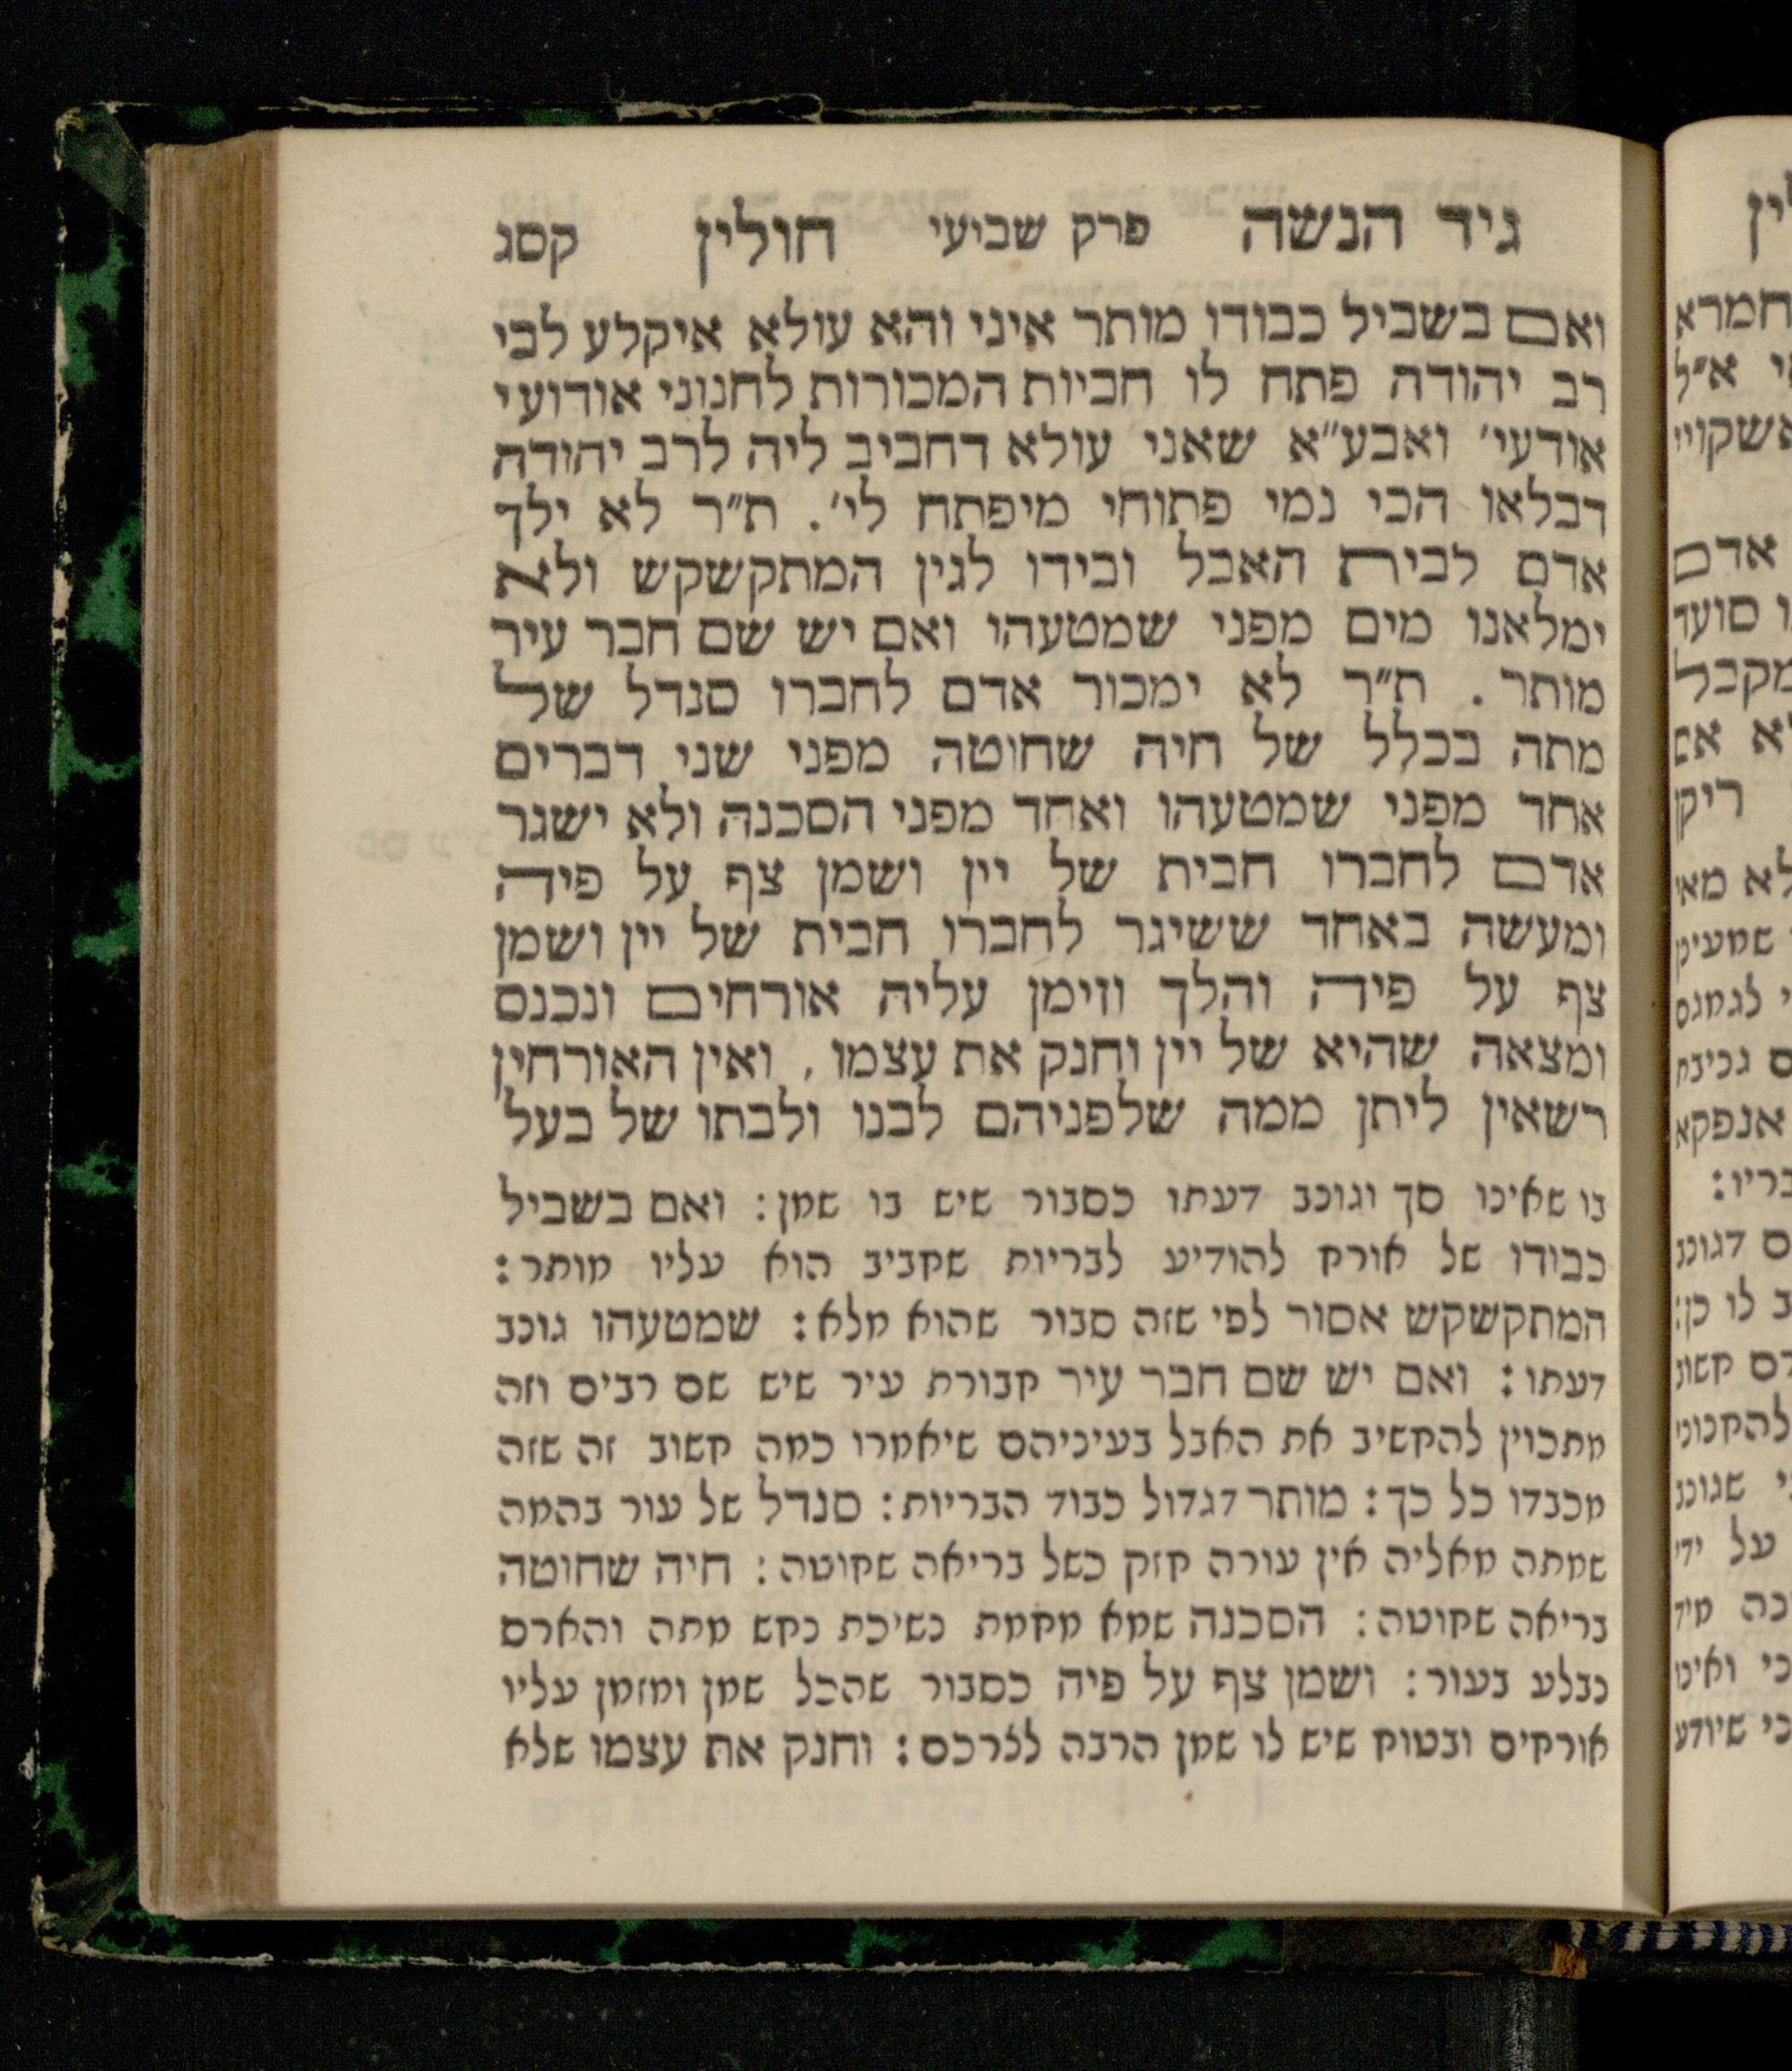 גיד הנשה פרק שביעי חולין קסג
ואם בשביל כבודו מותר איני והא עולא איקלע לבי
רב יהודה פתח לו חביות המכורות לחנוני אודועי
אודעי׳ ואבע״א שאני עולא דחביב ליה לרב יהודה
דבלאו הכי נמי פתוחי מיפתח לי׳. ת״ר לא ילך
אדם לבית האבל ובידו לגין המתקשקש ולא
ימלאנו מים מפני שמטעהו ואם יש שם חבר עיר
מותר. ת״ר לא ימכור אדם לחברו סנדל של
מתה בכלל של חיה שחוטה מפני שני דברים
אחד מפני שמטעהו ואחד מפני הסכנה ולא ישגר
אדם לחברו חבית של יין ושמן צף על פיה
ומעשה באחד ששיגר לחברו חבית של יין ושמן
צף על פיה והלך וזימן עליה אורחים ונכנס
ומצאה שהיא של יין וחנק את עצמו, ואין האורחין
רשאין ליתן ממה שלפניהם לבנו ולבתו של בעל
בו שאינו סך וגונב דעתו כסבור שיש בו שמן: ואם בשביל
כבודו של אורח להודיע לבריות שחביב הוא עליו מותר:
המתקשקש אסור לפי שזה סבור שהוא מלא: שמטעהו גונב
דעתו: ואם יש שם חבר עיר חבורת עיר שיש שם רבים וזה
מתכוין להחשיב את האבל בעיניהם שיאמרו כמה חשוב זה שזה
מכבדו כל כך: מותר דגדול כבוד הבריות: סנדל של עור בהמה
שמתה מאליה אין עורה חזק כשל בריאה שחוטה: חיה שחוטה
בריאה שחוטה: הסכנה שמא מחמת נשיכת נחש מתה והארס
נבלע בעור: ושמן צף על פיה כסבור שהכל שמן ומזמן עליו
אורחים ובטוח שיש לו שמן הרבה לצרכם: וחנק את עצמו שלא